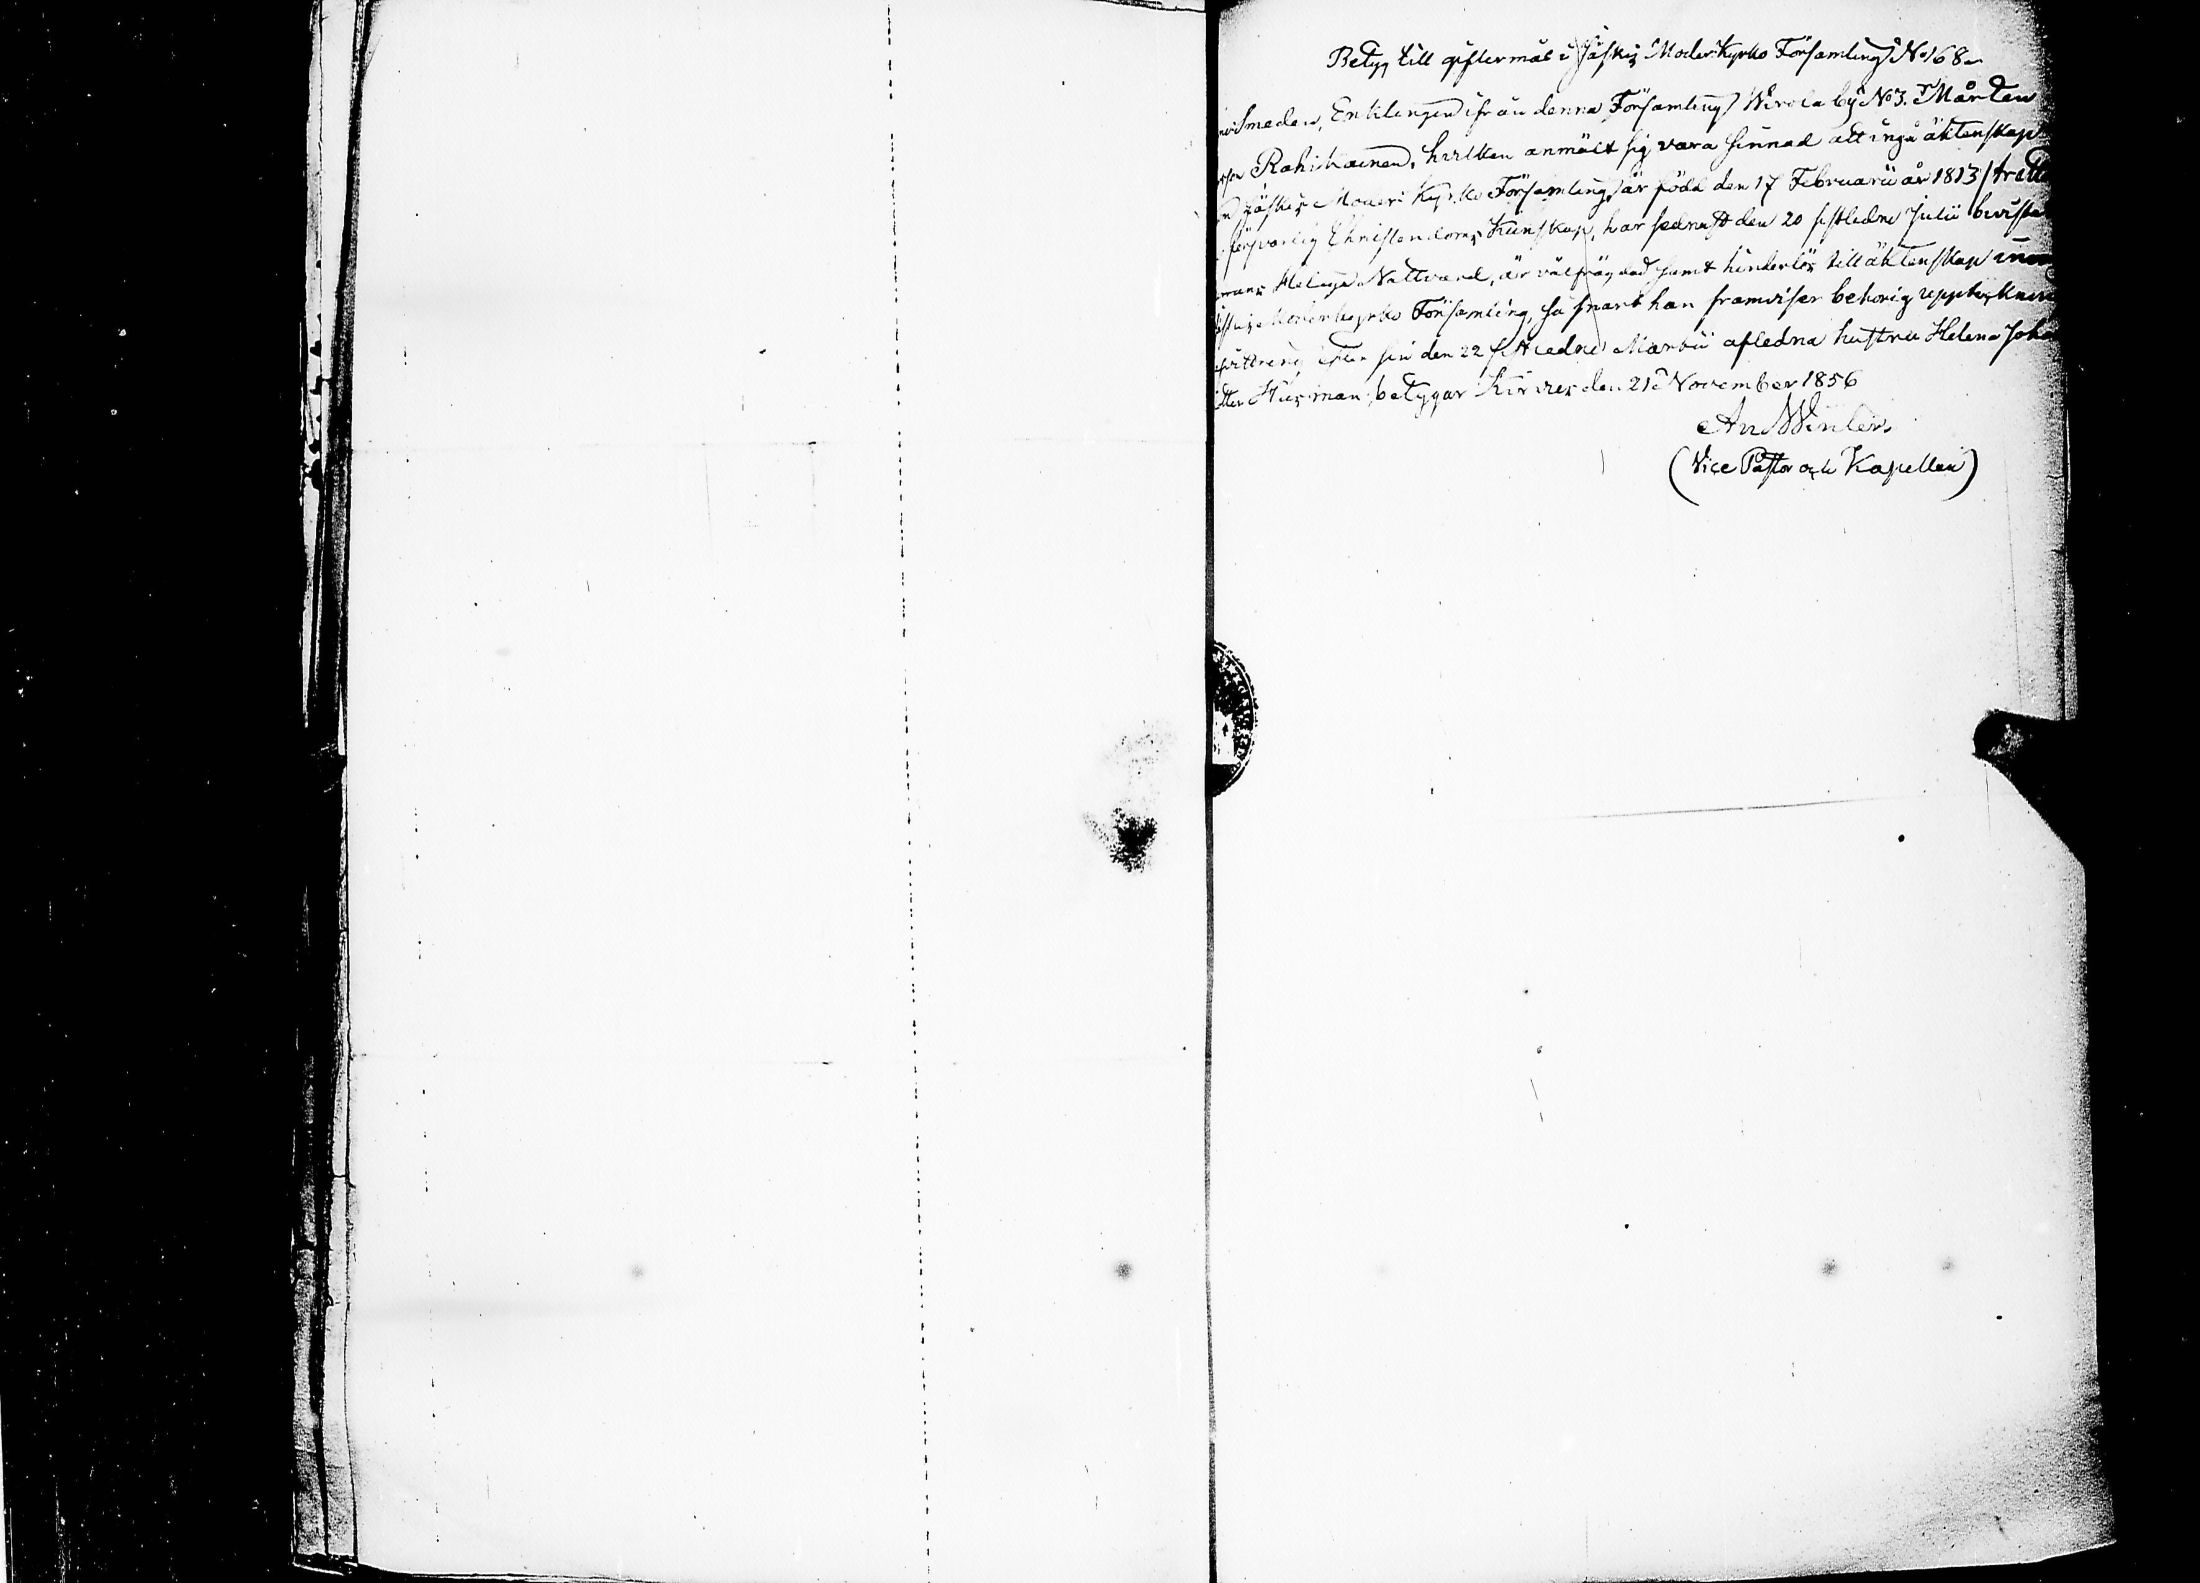 Betyg till giftermål i Jäskis Moder-kyrko Församling No 168.
Smeden, Enklingen ifrån denna Församling Wirola by No 3. Mårten
Rahikainen, hvilken anmält sig vara sinnad att ingå äktenskap
Jäskis Moder-Kyrko Församling, är född den 17 Februarii år 1813 /trett
försvarlig Christendoms Kunskap, har sednast den 20 sistledne Julii bevista
Heliga Nattvard, är välfrägdad samt hinderlös till äktenskap inom
Moderkyrko Församling, så snart han framviser behörig uppteckni
efter sin den 22 sistledne Martii afledna hustru Helena Joha
Husman, betygar Kirvus den 21 November 1856
(Vice Pastor och Kapellan)